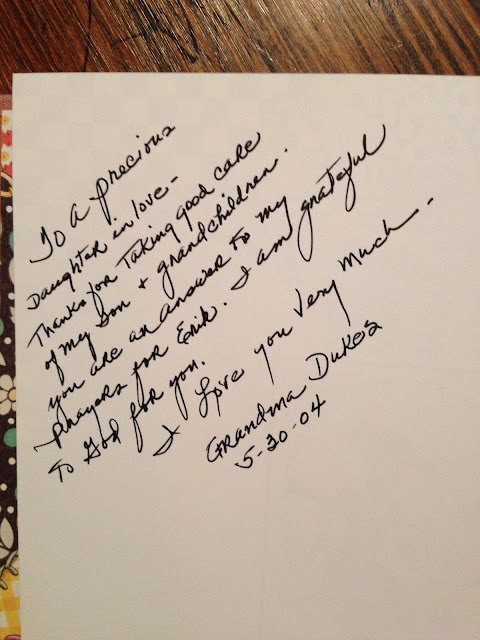 To A precious
Daughter in love-
Thanks for Taking good care
of my Son + grandchildren.
you are an answer to my
prayers for Erik. I am grateful
To God for you.
I Love you Very Much-
Grandma Dukes
5-20-04